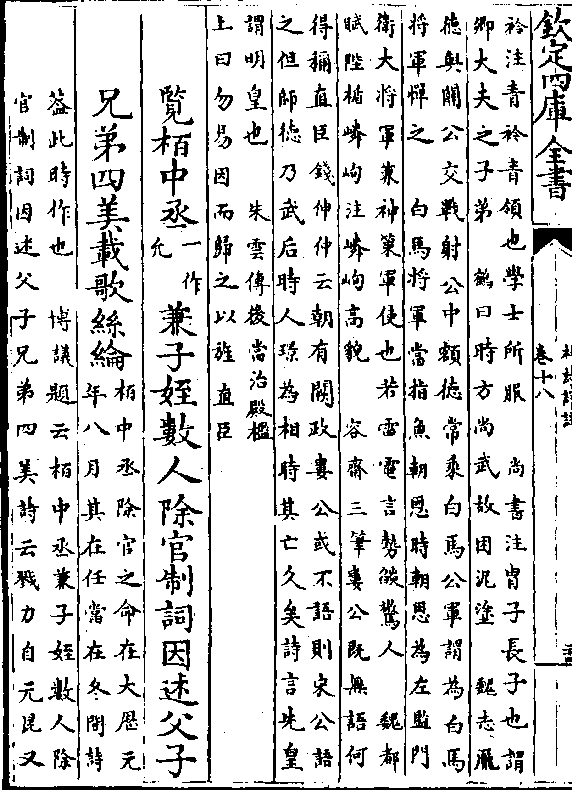 欽定四庫全書
卷十八
衿注青衿青領也學士所服　尚書注胄子長子也謂
卿大夫之子弟　鶴曰時方尚武故因泥塗　魏志龐
德與關公交戰射公中額德常乘白馬公軍謂為白馬
將軍憚之　白馬將軍當指魚朝恩時朝恩為左監門
衛大將軍兼神策軍使也若雷電言勢燄驚人　魏都
賦陛楯嶙峋注嶙峋高貌　容齋三筆婁公既無語何
得稱直臣錢伸仲云朝有闕政婁公或不語則宋公語
之但師德乃武后時人璟為相時其亡久矣詩言先皇
謂明皇也　朱雲傳後當治殿檻
上曰勿易因而輯之以旌直臣
覽栢中丞一作中允兼子姪數人除官制詞因述父子
兄弟四美載歌絲綸栢中丞除官之命在大厯元
年八月其在任當在冬間詩
葢此時作也　博議題云栢中丞兼子姪數人除
官制詞因述父子兄弟四美詩云戮力自元昆又